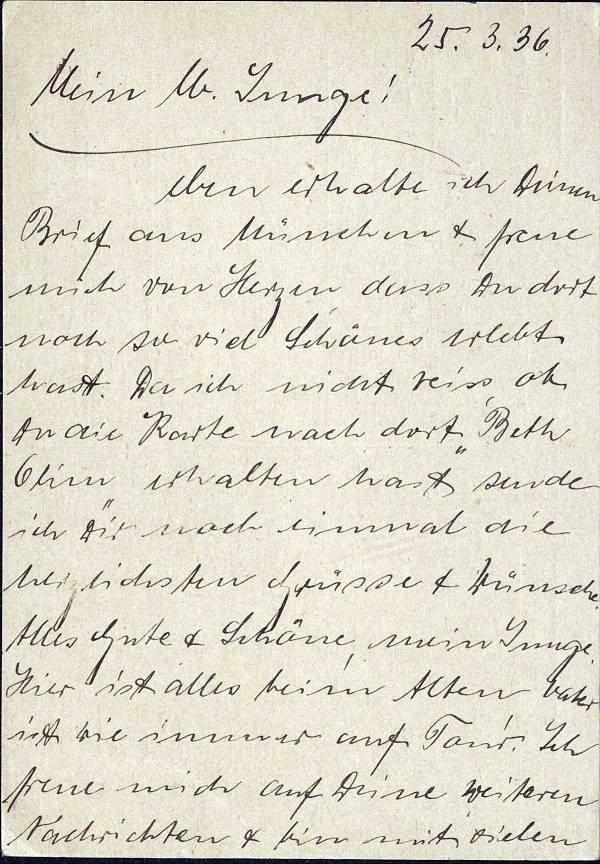 25. 3. 36.
Mein lb. Junge!
eben erhalte ich Deinen
Brief aus München & freue
mich von Herzen dass Du dort
noch so viel Schönes erlebt
hast. Da ich nicht weiss, ob
Du die Karte nach dort "Beth
Olim" erhalten hast, sende
ich Dir noch einmal die
herzlichsten Grüsse & Wünsche.
Alles Gute & Schöne, mein Junge.
Hier ist alles beim Alten, Vater
ist wie immer auf Tour. Ich
freue mich auf Deine weiteren
Nachrichten & bin mit vielen